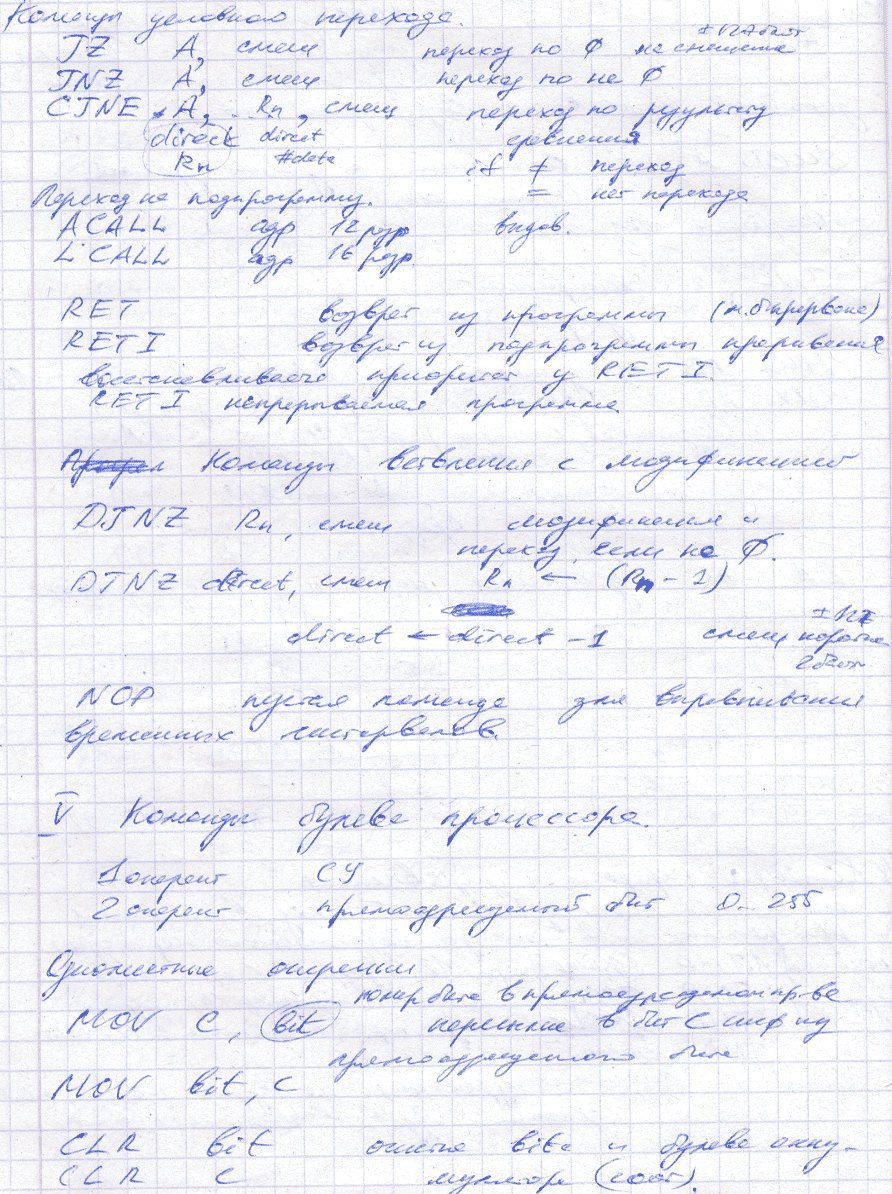 Команды условного перехода.
± 127 байт
JZ A, смещ переход по ∅ на смещение
JNZ A, смещ переход по не ∅
CJNE A, Rn, смещ переход по результату
direct direct сравнения
Rn #data if ≠ переход
= нет перехода
Переход на подпрограмму.
ACALL адр 12 разр вызов.
LCALL адр 16 разр.
RET возврат из программы (м. б. прервана)
RETI возврат из подпрограммы прерывания
восстанавливает приоритет у RETI.
RETI непрерываемая программа
Команды ветвления с модификацией
DJNZ Rn, смещ модификация и
переход, если не ∅.
DJNZ direct, смещ Rn ← (Rn - 1)
± 127
direct ← direct - 1 смещ
NOP пустая команда для выравнивания
временных интервалов.
V Команды булева процессора.
1 оперант CY
2 оперант прямоадресуемый бит 0 - 255
Одноместные операции
номер бита в прямоадресуемом пр-ве
MOV C, bit в бит C инф из
прямоадресуемого бита
MOV bit, C
CLR bit очистка bita и булева акку-
CLR C мулятора